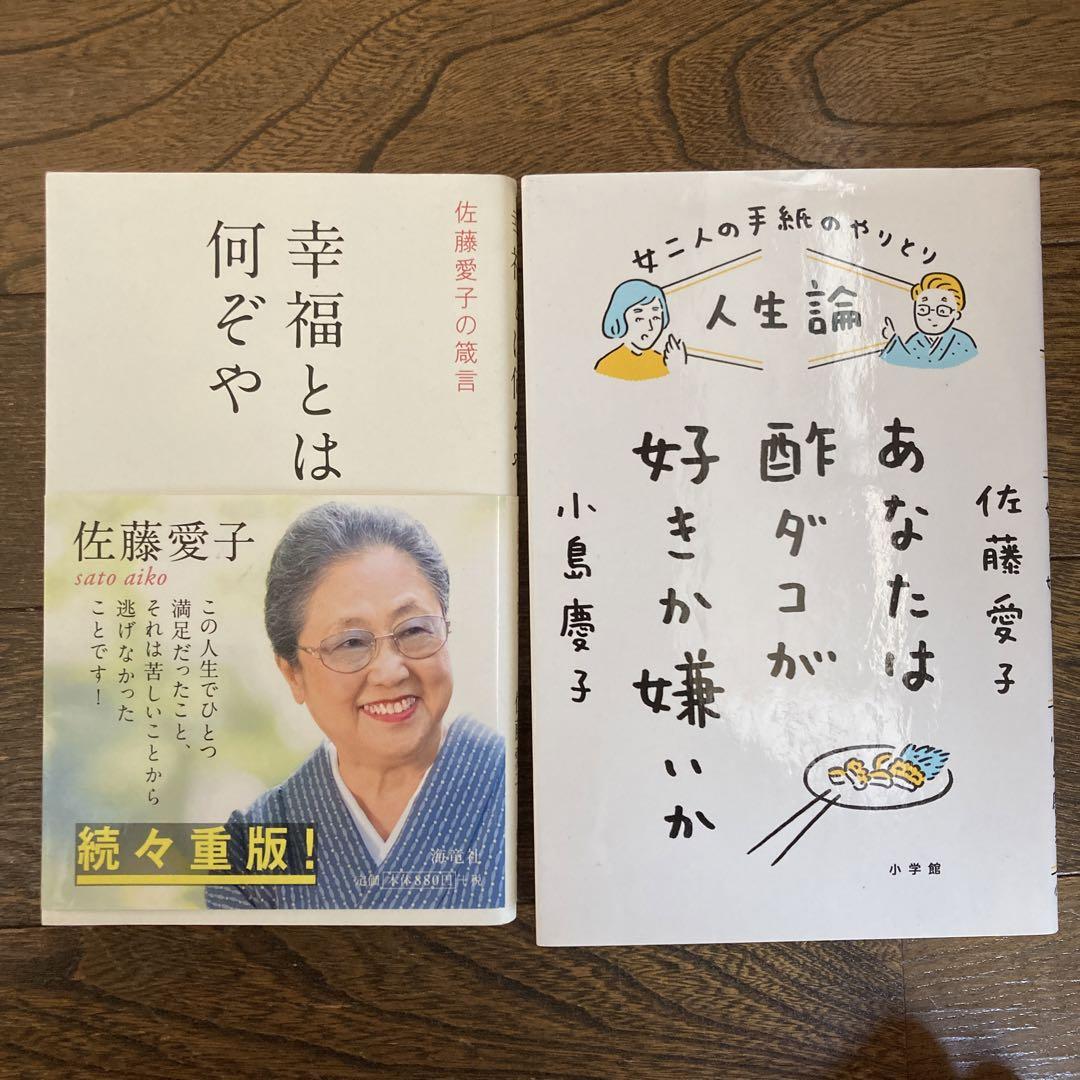 佐藤愛子の箴言
幸福とは
何ぞや
佐藤愛子
sato aiko
この人生でひとつ
満足だったこと、
それは苦しいことから
逃げなかった
ことです!
続々重版!
海竜社
定価 本体880円+税
女二人の手紙のやりとり
人生論
あなたは
酢ダコが
好きか嫌いか
佐藤愛子
小島慶子
小学館